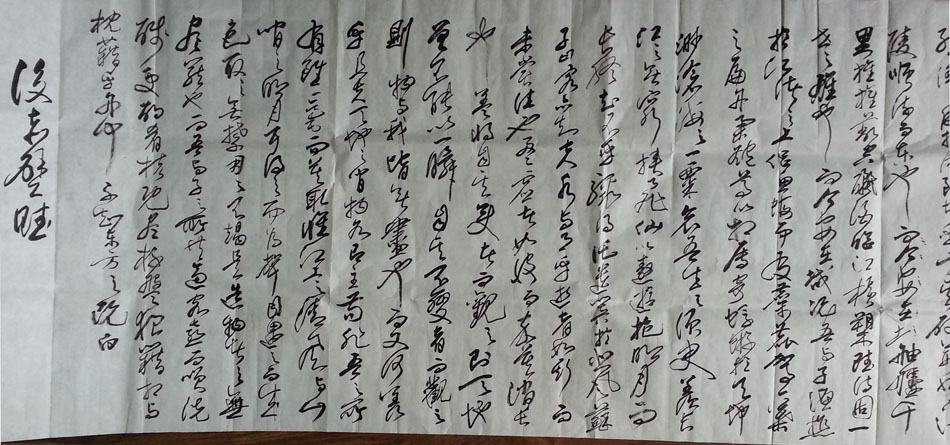 陵順流而東也舳艫千
里旌旗蔽空釃酒臨江橫槊賦詩固一
世之雄也而今安在哉況吾與子漁樵
於江渚之上侶魚蝦而友麋鹿駕一葉
之扁舟舉匏尊以相屬寄蜉蝣於天地
渺滄海之一粟哀吾生之須臾羨長
江之無窮挾飛仙以遨遊抱明月而
長終知不可乎驟得託遺響於悲風蘇
子曰客亦知夫水與月乎逝者如斯而
未嘗往也盈虛者如彼而卒莫消長
也蓋將自其變者而觀之則天地
曾不能以一瞬自其不變者而觀之
則物與我皆無盡也而又何羨
乎且夫天地之間物各有主苟非吾之所
有雖一毫而莫取惟江上之清風與山
間之明月耳得之而為聲目遇之而成
色取之無禁用之不竭是造物者之無
盡藏也而吾與子之所共適客喜而笑洗
盞更酌肴核既盡杯盤狼籍相與
枕藉乎舟中不知東方之既白
後赤壁賦